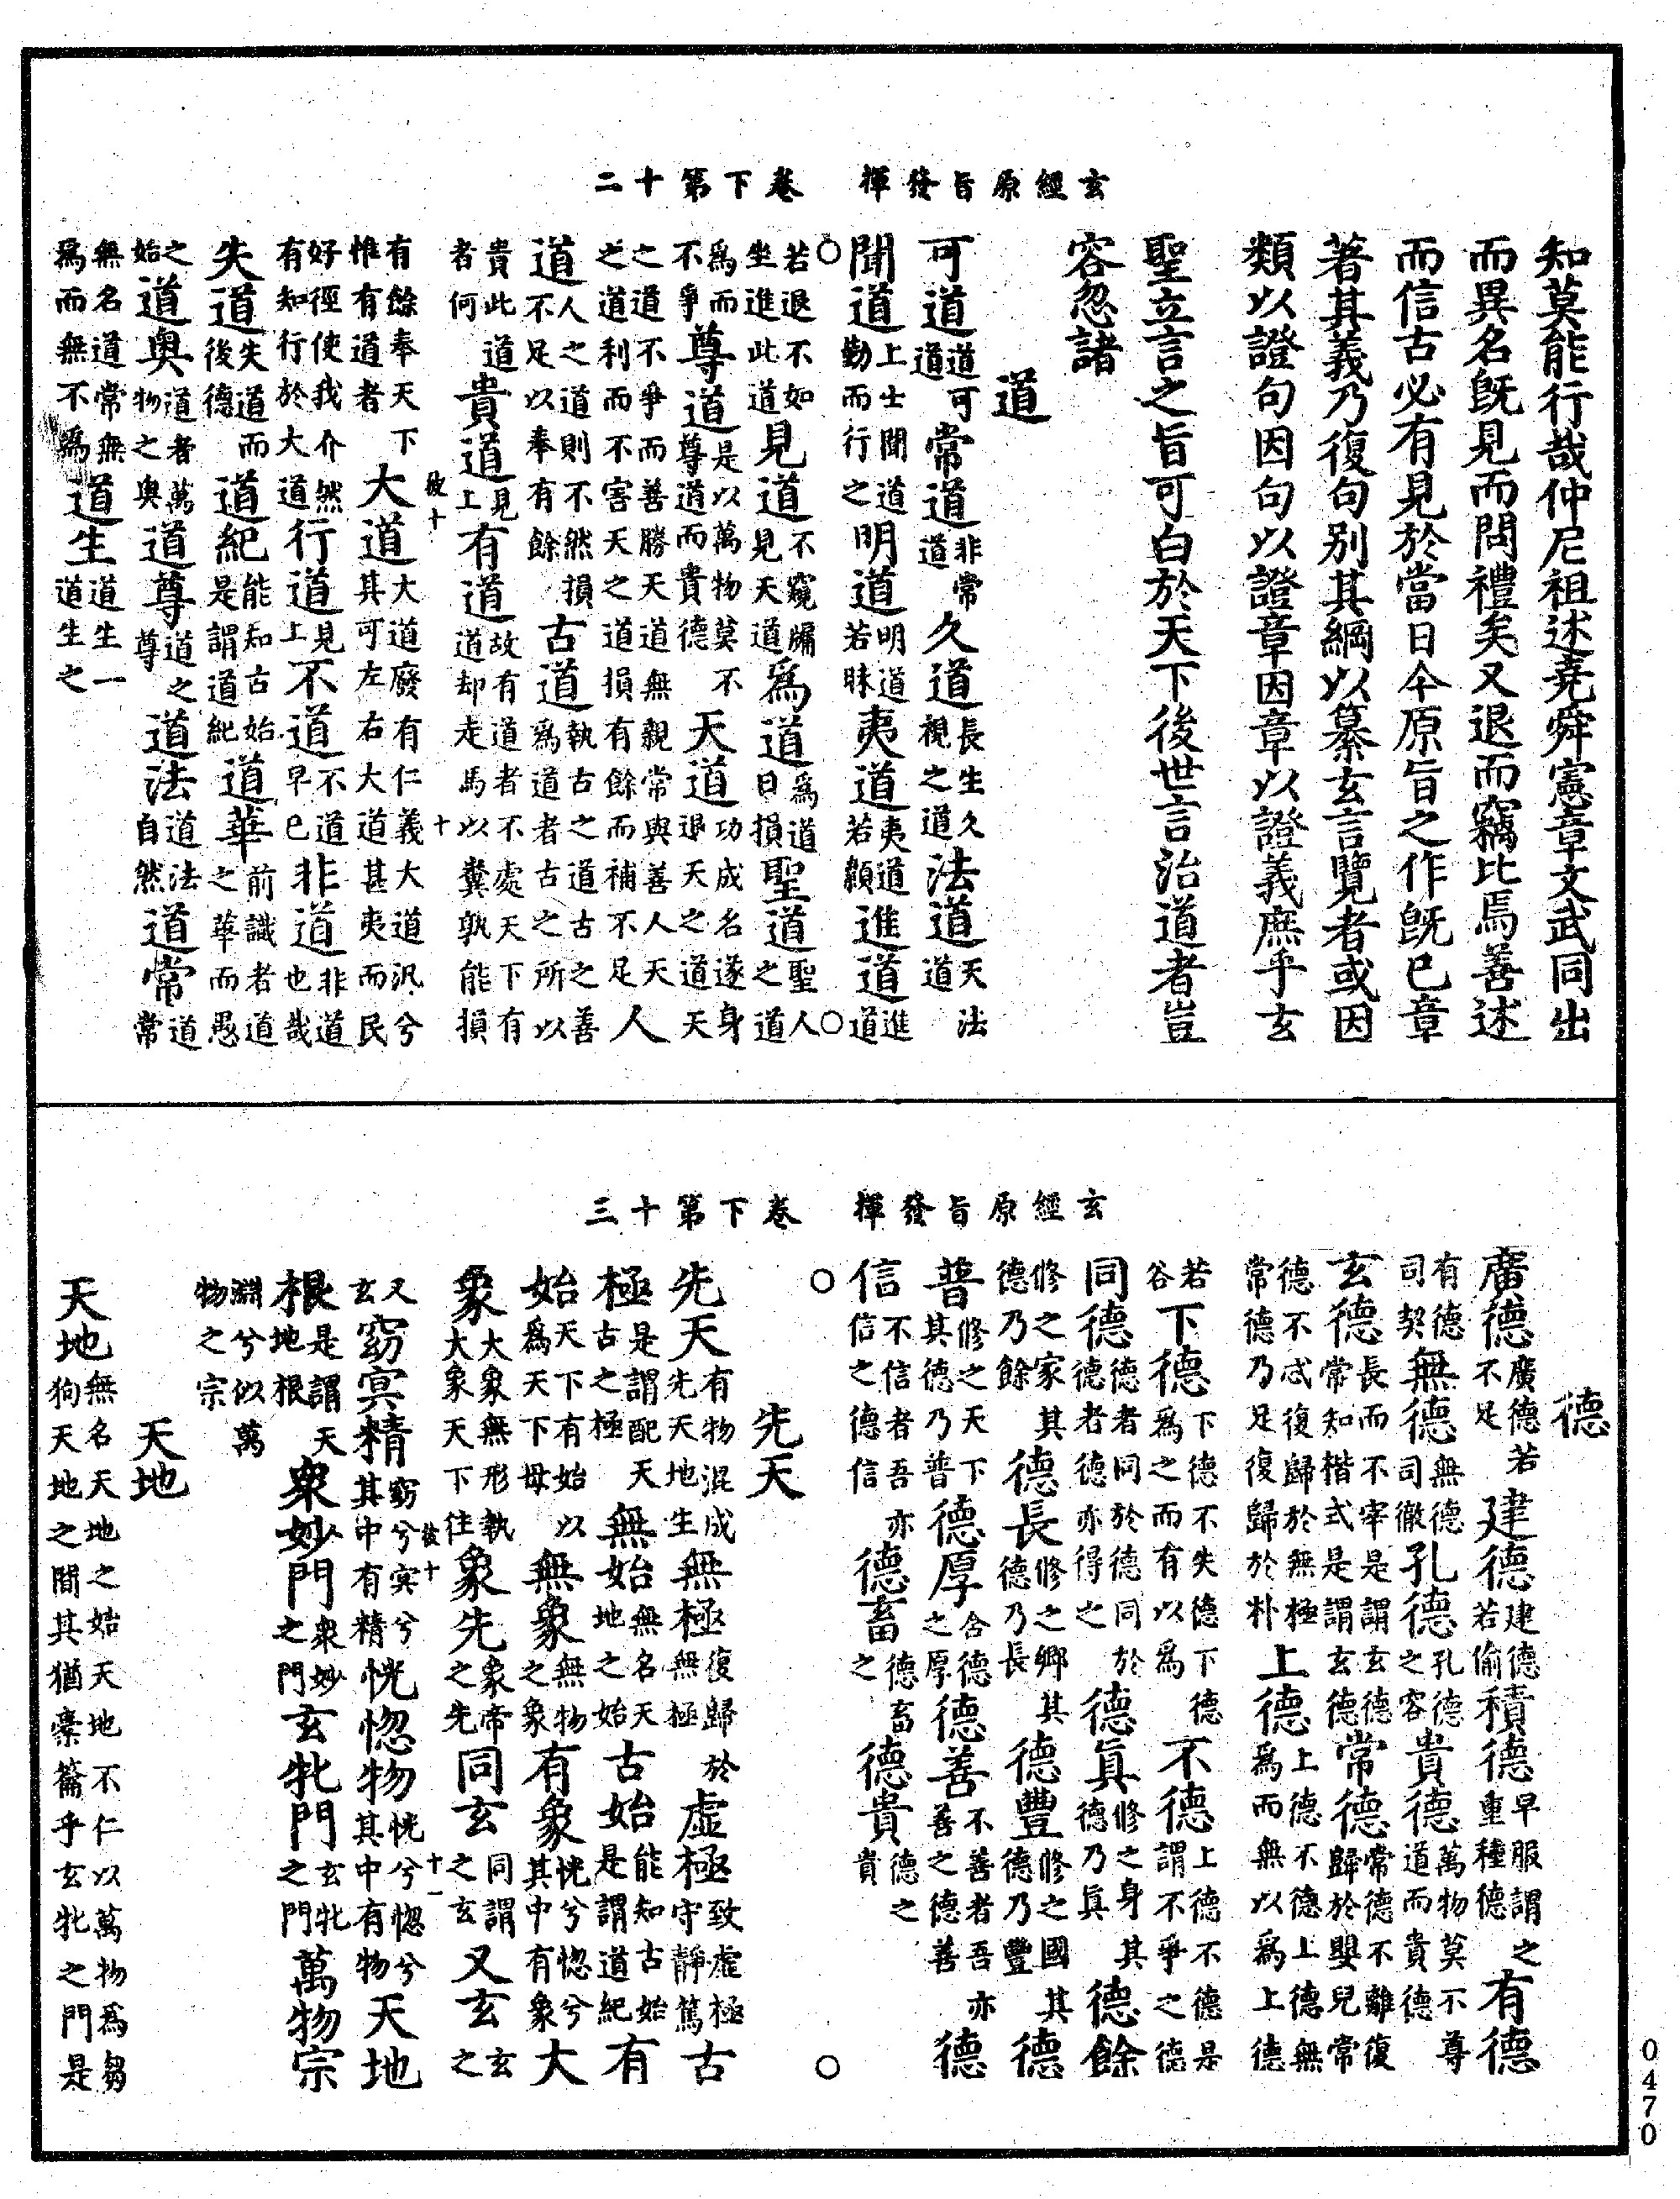 玄經原旨發揮　卷下第十二
知莫能行哉仲尼祖述堯舜憲章文武同出
而異名旣見而問禮矣又退而竊比焉善述
而信古必有見於當日今原旨之作旣已章
著其義乃復句别其綱以纂玄言覽者或因
類以證句因句以證章因章以證義庶乎玄
聖立言之旨可白於天下後世言治道者豈
容忽諸
道
可道道可道常道非常道久道長生久視之道法道天法道
聞道上士聞道勤而行之明道明道若昧夷道夷道若纇進道進道
若退不如坐進此道見道不窺牖見天道爲道爲道日損聖道聖人之道
爲而不爭尊道是以萬物莫不尊道而貴德天道功成名遂身退天之道天
之道不爭而善勝天道無親常與善人天之道利而不害天之道損有餘而補不足人
道人之道則不然損不足以奉有餘古道執古之道古之善爲道者古之所以
貴此道者何貴道見上有道故有道者不處天下有道却走馬以糞孰能損
有餘奉天下惟有道者大道大道廢有仁義大道汎兮其可左右大道甚夷而民
好徑使我介然有知行於大道行道見上不道不道早已非道非道也哉
失道失道而後德道紀能知古始是謂道紀道華前識者道之華而愚
之始道奥道者萬物之奥道尊道之尊道法道法自然道常道常
無名道常無爲而無不爲道生道生一道生之
玄經原旨發揮　卷下第十三
德
廣德廣德若不足建德建德若偷積德早服謂之重積德有德
有德司契無德無德司徹孔德孔德之容貴德萬物莫不尊道而貴德
玄德長而不宰是謂玄德常知楷式是謂玄德常德常德不離復歸於嬰兒常
德不忒復歸於無極常德乃足復歸於朴上德上德不德上德無爲而無以爲上德
若谷下德下德不失德下德爲之而有以爲不德上德不德是謂不爭之德
同德德者同於德同於德者德亦得之德眞修之身其德乃眞德餘
修之家其德乃餘德長修之鄉其德乃長德豐修之國其德乃豐德
普修之天下其德乃普德厚含德之厚德善不善者吾亦善之德善德
信不信者吾亦信之德信德畜德畜之德貴德之貴
先天
先天有物混成先天地生無極復歸於無極虛極致虛極守靜篤古
極是謂配天古之極無始無名天地之始古始能知古始是謂道紀有
始天下有始以爲天下母無象無物之象有象恍兮惚兮其中有象大
象大象無形執大象天下往象先象帝之先同玄同謂之玄又玄玄之
又玄窈冥精窈兮冥兮其中有精恍惚物恍兮惚兮其中有物天地
根是謂天地根衆妙門衆妙之門玄牝門玄牝之門萬物宗
淵兮似萬物之宗
天地
天地無名天地之始天地不仁以萬物爲芻狗天地之間其猶橐籥乎玄牝之門是
0470